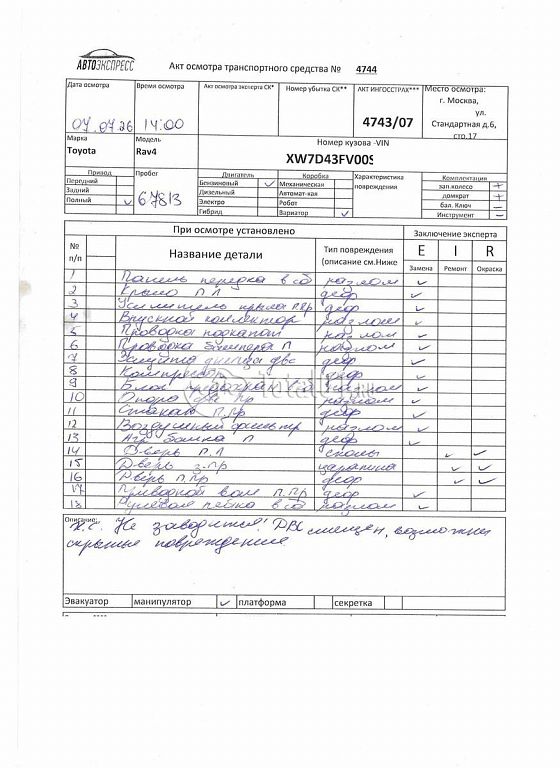 АВТОЭКСПРЕСС
Акт осмотра транспортного средства № 4744
Дата осмотра Время осмотра Акт осмотра эксперта СК* Номер убытка СК** АКТ ИНГОССТРАХ*** Место осмотра:
г. Москва,
ул.
Стандартная д.6,
стр.17
07.07.26 14:00 4743/07
Марка Модель Номер кузова -VIN
Toyota Rav4 XW7D43FV00S
Привод Пробег Двигатель Коробка Характеристика повреждения Комплектация
Передний Бензиновый ✓ Механическая зап.колесо +
Задний Дизельный Автомат-кая домкрат +
Полный ✓ 67813 Электро Робот бал. Ключ –
Гибрид Вариатор ✓ Инструмент –
При осмотре установлено Заключение эксперта
№ п/п Название детали Тип повреждения (описание см.Ниже E I R
Замена Ремонт Окраска
1 Панель передка в сб разлом ✓
2 Крыло П.Л деф ✓
3 Усилитель крыла п.пр деф ✓
4 Впускной коллектор разлом ✓
5 Проводка подкапот разлом ✓
6 Проводка бампера П разлом ✓
7 Защита днища двс деф ✓
8 Компрессор деф ✓
9 Блок предохран разлом ✓
10 Опора двс пр разлом ✓
11 Стакан п.пр деф ✓
12 Воздушный фильтр разлом ✓
13 Агр бачка П деф ✓
14 Дверь П.Л сколы ✓ ✓
15 Дверь з.пр царапина ✓ ✓
16 Дверь п.пр деф ✓ ✓
17 Приводной вал п.пр деф ✓
18 Рулевая рейка в сб разлом ✓
Описание: К.С. Не заводится! ДВС смещен, возможны
скрытые повреждения
Эвакуатор манипулятор ✓ платформа секретка